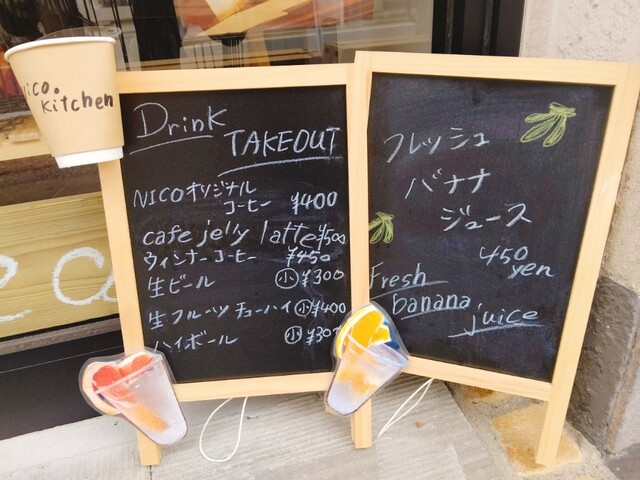 Nico.
Kitchen
Drink
TAKEOUT
NICOオリジナル
コーヒー ¥400
cafe jelly latte ¥500
ウィンナーコーヒー ¥450
生ビール 小 ¥300
生フルーツチューハイ 小 ¥400
ハイボール 小
フレッシュ
バナナ
ジュース
450
yen
Fresh
banana
juice